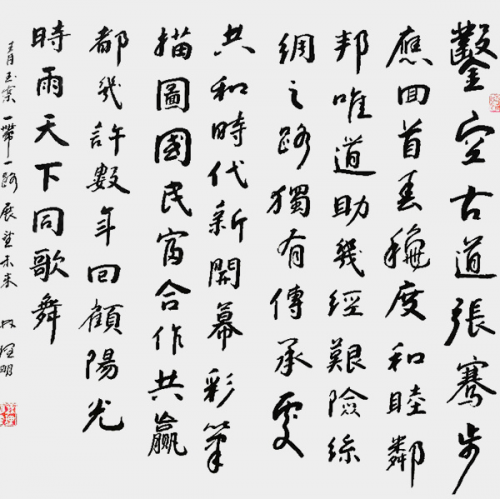 鑿空古道張騫步
應回首穐度和睦鄰
邦唯道助幾經艱險絲
綢之路獨有傳承處
共和時代新開幕彩筆
描圖國民富合作共贏
都幾許數年回顧陽光
時雨天下同歌舞
青玉案一帶一路展望未來